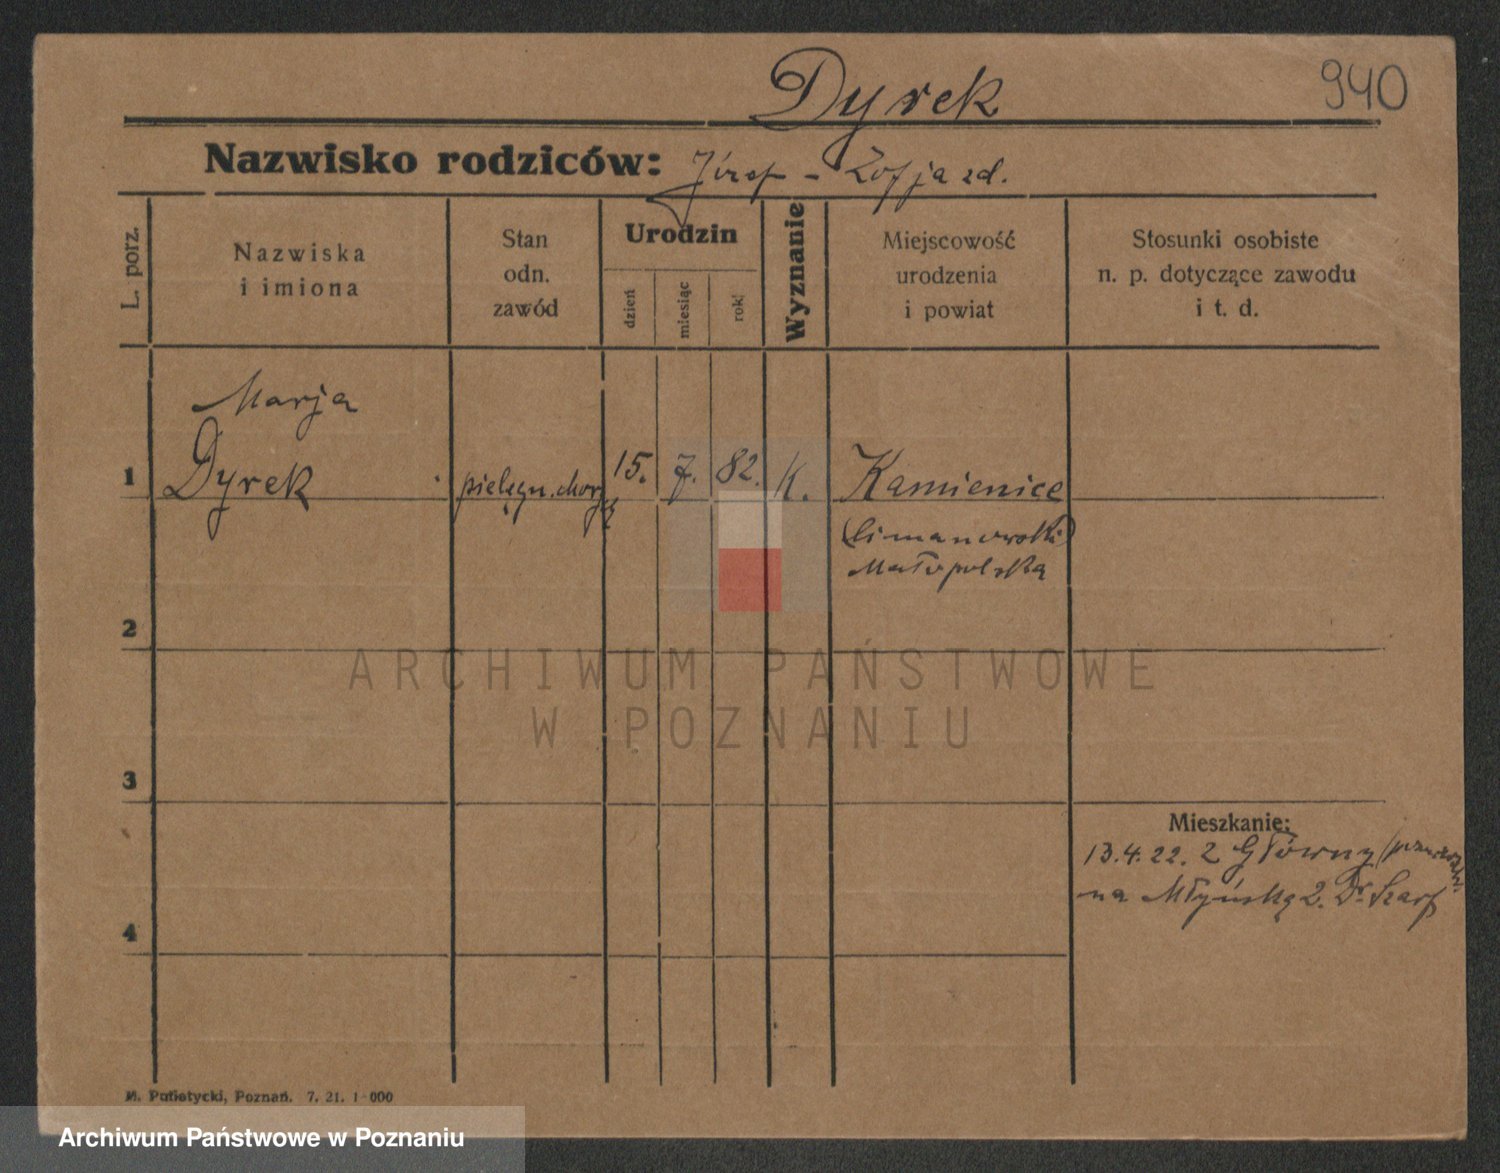 Dyrek
940
Nazwisko rodziców: Józef - Zofja zd.
L. porz.
Nazwiska
i imiona
Stan
odn.
zawód
Urodzin
dzień
miesiąc
rok
Wyznanie
Miejscowość
urodzenia
i powiat
Stosunki osobiste
n. p. dotyczące zawodu
i t. d.
Marja
1 Dyrek pielęgn. chorych 15. 7. 82. K. Kamienice
(limanowski)
Małopolska
2
ARCHIWUM PAŃSTWOWE
W POZNANIU
3
Mieszkanie:
13.4.22. 2 Główny
na Młyńską 2. Dr. Szarf
4
M. Putiatycki, Poznań. 7. 21. 1 000
Archiwum Państwowe w Poznaniu